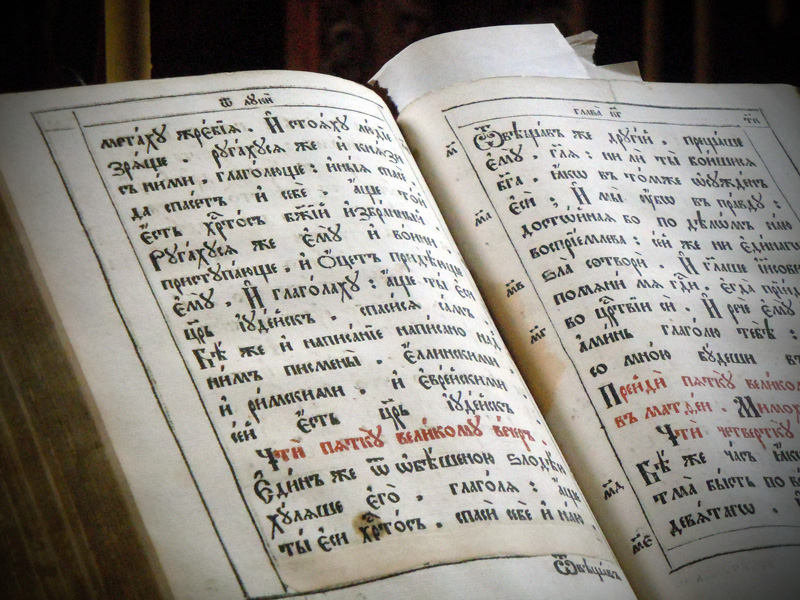 ѿ лꙋкѝ
мета́хꙋ жре́бїѧ . И҆ стоѧ́хꙋ лю́дїе
зрѧ́ще . рꙋга́хꙋсѧ же и҆ кнѧ́зи
съ ни́ми . глаго́люще : и҆ны́ѧ спасѐ
да спасе́тъ и҆ себѐ . а҆́ще то́й
є҆́сть хрⷭ҇то́съ бж҃їй и҆збра́нный
Рꙋга́хꙋсѧ же є҆мꙋ̀ и҆ во́ини
пристꙋпа́юще . и҆ ѻ҆́цетъ придѣ́юще
є҆мꙋ̀ . И҆ глаго́лахꙋ : а҆́ще ты̀ є҆сѝ
цр҃ь і҆ꙋде́йскъ . спаси́сѧ са́мъ .
Бѣ́ же и҆ написа́нїе напи́сано над̾
ни́мъ писмены̀ . є҆́ллинскими
и҆ ри́мскими . и҆ є҆вре́йскими .
се́й є҆́сть цр҃ь і҆ꙋде́йскъ
Чтѝ пѧткꙋ̀ вели́комꙋ ве́черъ .
Є҆ди́нъ же ѿ ѡ҆бѣ́шеною ѕлодѣ́ю
хꙋ́лѧше є҆го̀ . глаго́лѧ : а҆́ще
ты̀ є҆сѝ хрⷭ҇то́съ . спасѝ себѐ и҆ на́ю
Ѿвѣща́въ
глава̀ кг
чтѝ
Ѿвѣща́въ же дрꙋгі́й . преща́ше
є҆мꙋ̀ . гл҃ѧ : ни ли ты̀ бои́шисѧ
бг҃а . ꙗ҆́кѡ въ то́мже ѡ҆сꙋжде́нъ
є҆сѝ ; И҆ мы̀ ᲂу҆́бѡ въ пра́вдꙋ :
досто́йнаѧ бо по дѣ́лѡмъ на́ю
воспрїе́млева : се́й же ни є҆ди́нагѡ
ѕла̀ сотворѝ . И҆ гл҃аше
помѧни́ мѧ гдⷭ҇и . є҆гда̀
во црⷭ҇твїи сѝ . И҆ речѐ є҆мꙋ̀
а҆ми́нь глаго́лю тебѣ̀ :
со мно́ю бꙋ́деши в
Прейдѝ пѧткꙋ̀ вели́ко
въ мⷮа гл҃ен . Мимо
Чтѝ четверткꙋ̀
Бѣ́ же ча́съ ꙗ҆́кѡ
тма̀ бы́сть по
девѧ́тагѡ .
м
ма
мв
мг
мд
ме